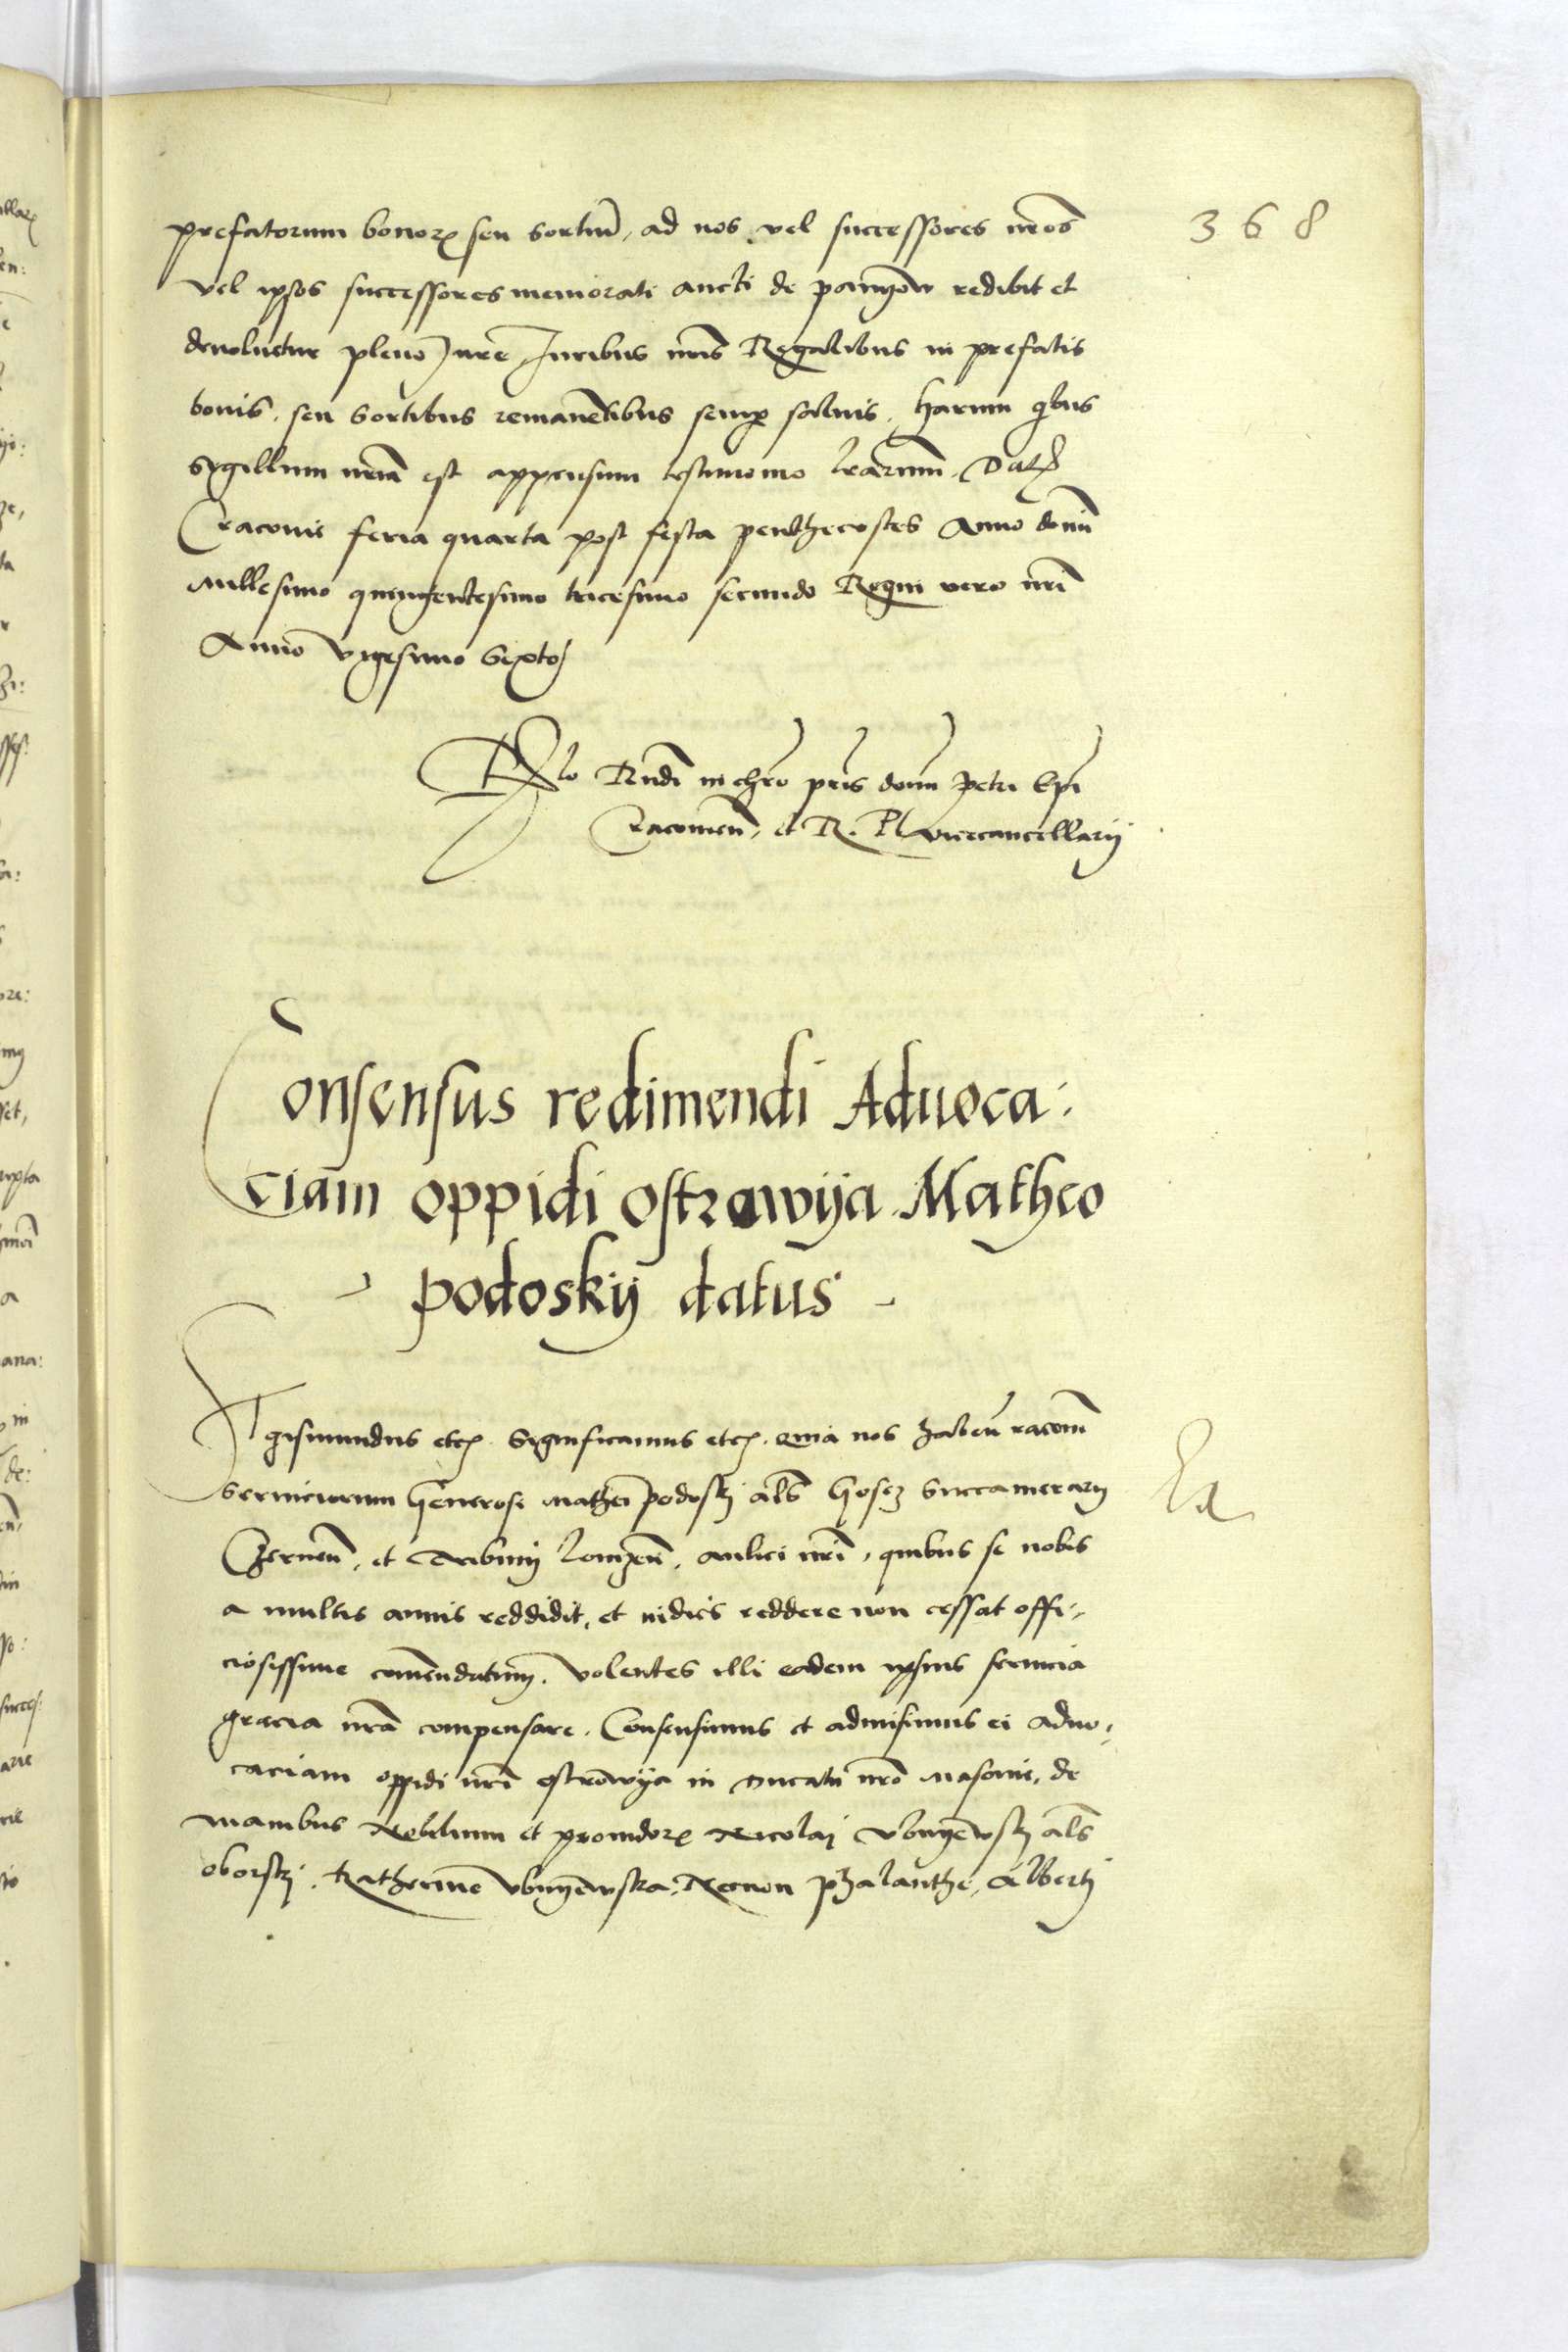 368
prefatorum bonorꝝ seu sortiū, ad nos vel successores nr̄os
vel ipsos successores memorati aucti de pamyow redibit et
devoluetur pleno Jure Juribus nr̄is Regalibus in prefatis
bonis, seu sortibus remanētibus semꝑ saluis, harum qͥbus
sygillum nr̄um est appensum testimonio lr̄arum. Datꝫ
Cracovie feria quarta post festa penthecostes Anno domī
millesimo quingentesimo tricesimo secundo Regni vero nr̄i
Anno vigesimo Sexto
Rlo Rndi in chr̄o pr̄is domī Petri Epī
Cracovien̄, et R. P. vicecancellarij
Consensus redimendi Aduoca:
ciam oppidi ostrawija Matheo
podoskij datus
Sigismundus etcꝫ. Significamus etcꝫ. quia nos haben̄ racōem
serviciorum Generosi Mathei podoskj als̄ Gosez Succamerarij
Czernen̄, et Tribuni lomzen̄, aulici nr̄i, quibus se nobis
a multis annis reddidit, et indies reddere non cessat offi-
ciosissime comendatum, volentes illi eadem ipsius seruicia
gracia nr̄a compensare. Consensimus et admisimus ei aduo-
caciam oppidi nr̄i ostrowija in Ducatu nr̄o Masovie, de
manibus Nobilium et providorꝝ Nicolaj vbnyewskj als̄
oborskj. Katherine vbnyewska, Necnon phalanthe, Alberti